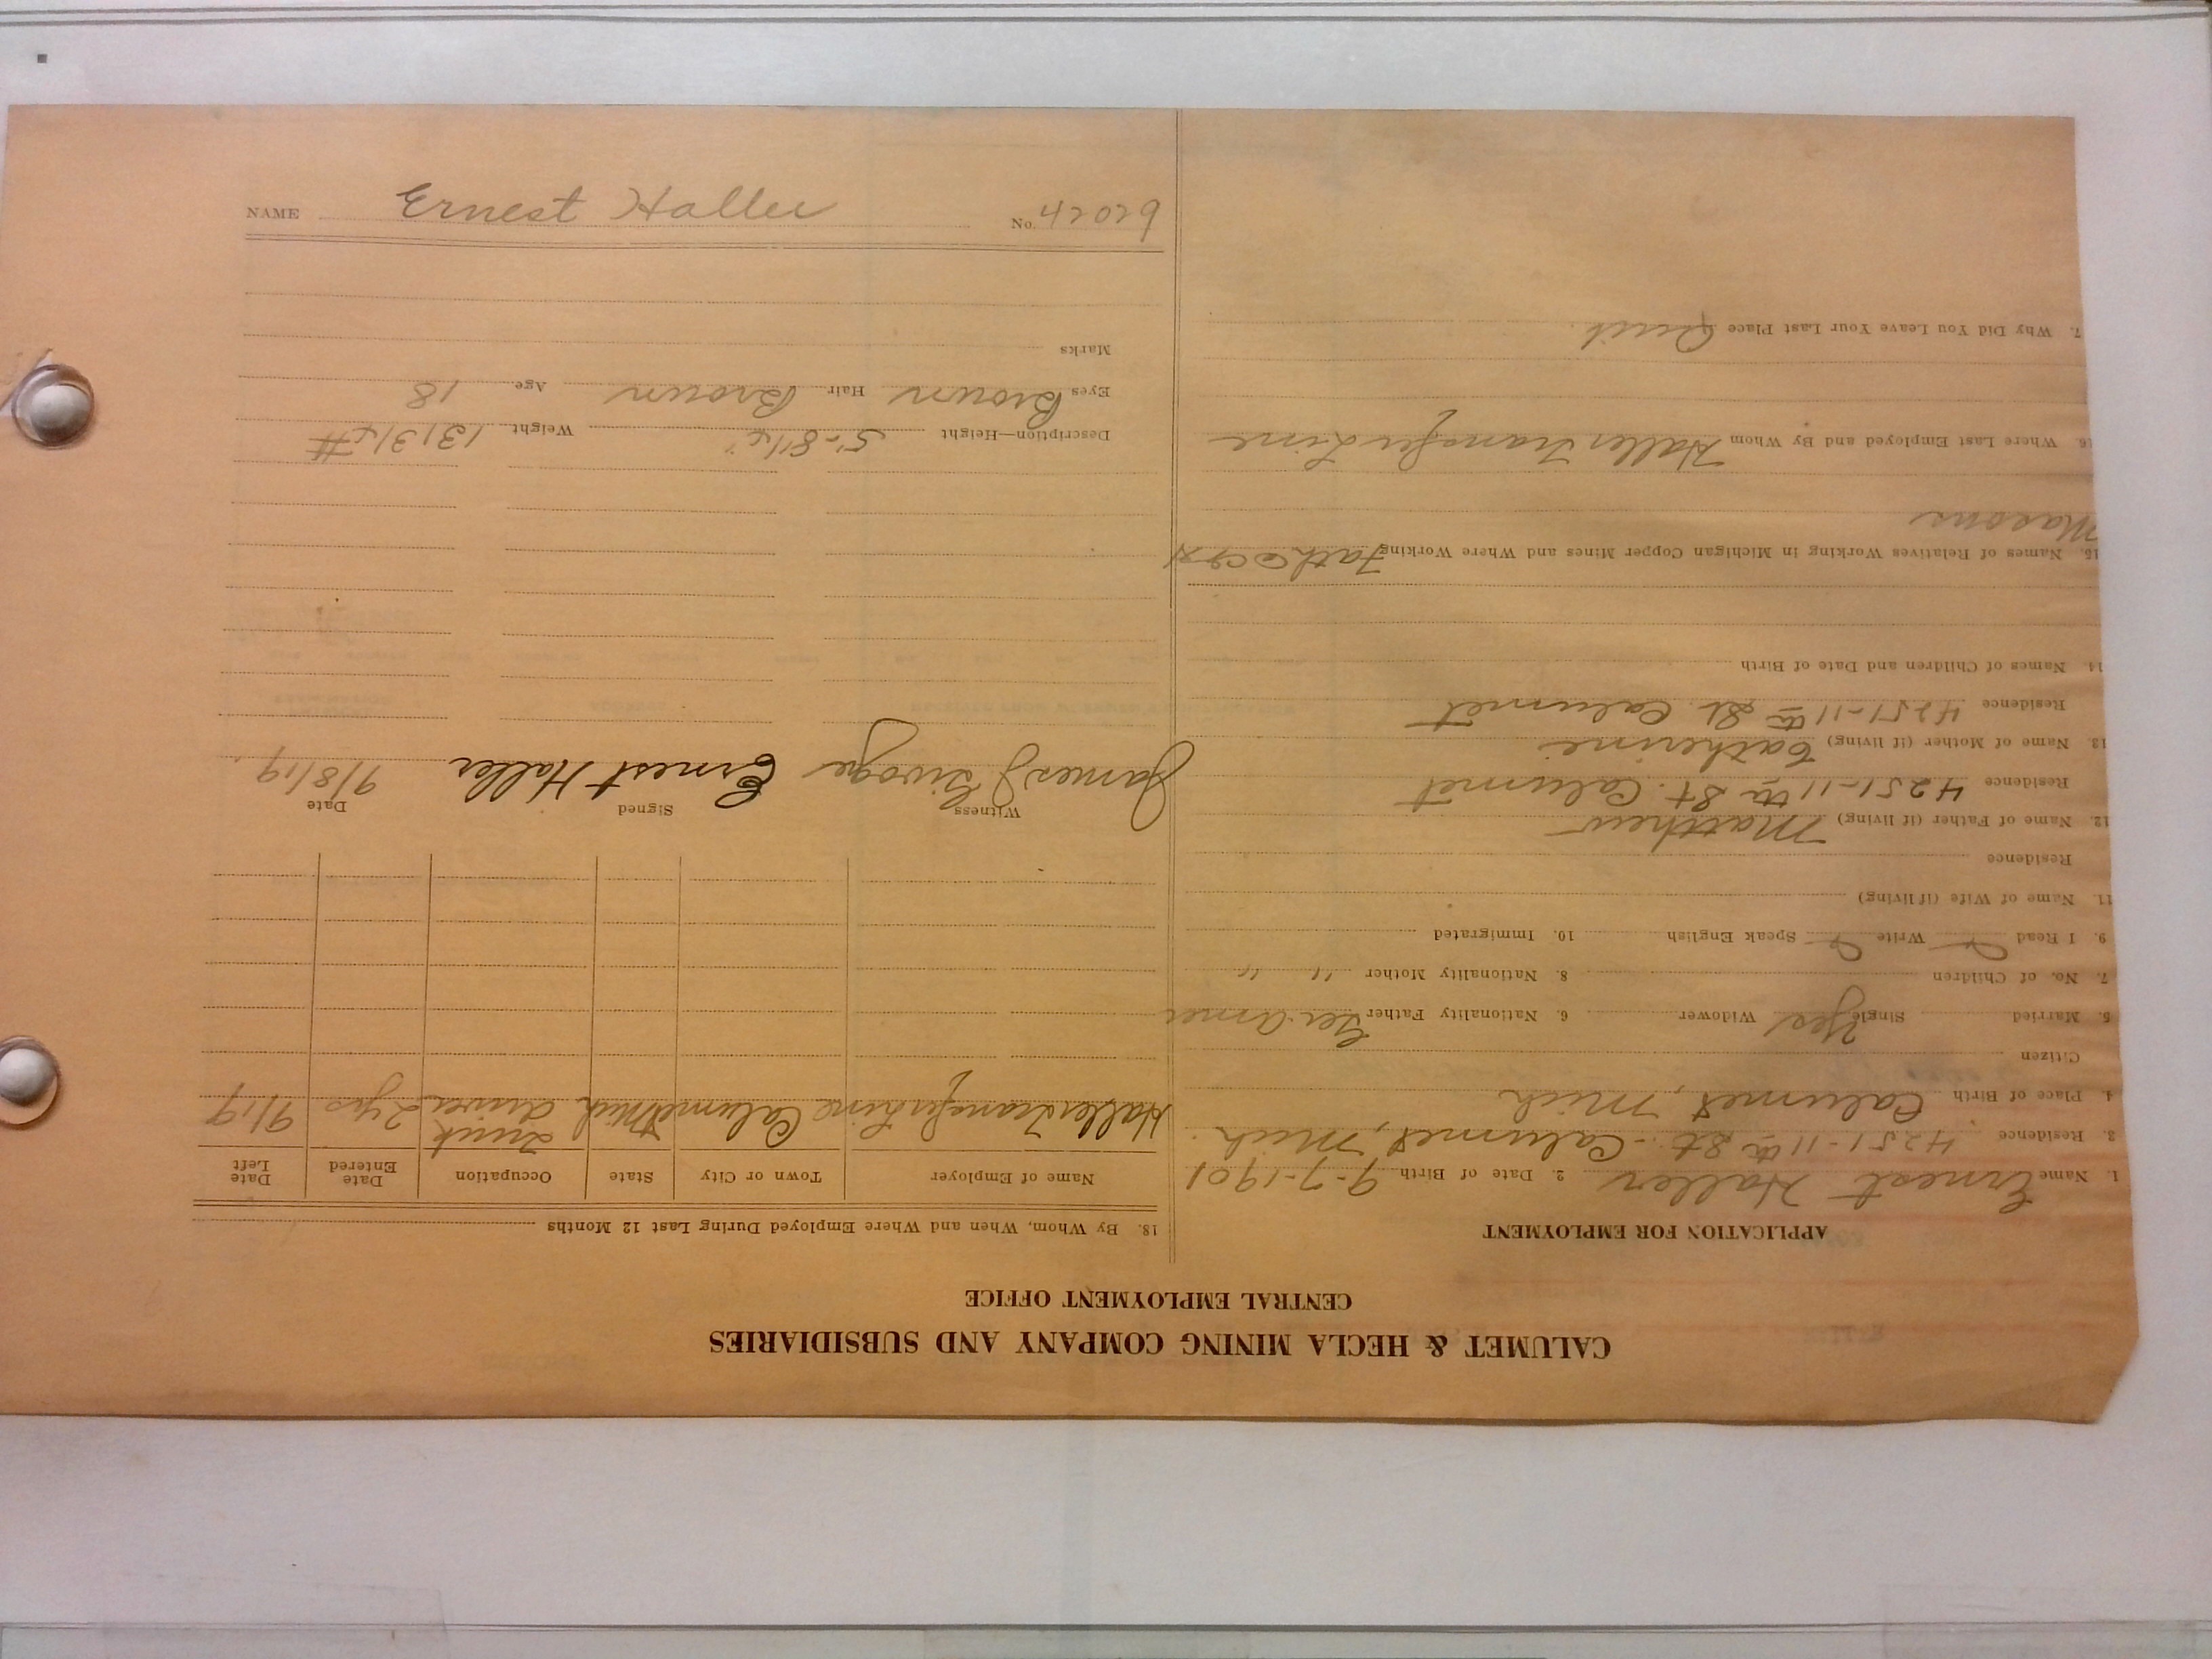 CALUMET & HECLA MINING COMPANY AND SUBSIDIARIES
CENTRAL EMPLOYMENT OFFICE
APPLICATION FOR EMPLOYMENT
1. Name Ernest Haller 2. Date of Birth 9-7-1901
3. Residence 4251-11th St. Calumet, Mich.
4. Place of Birth Calumet, Mich
Citizen
5. Married Single Yes Widower 6. Nationality Father Ger. Amer
7. No. of Children 8. Nationality Mother " "
9. I Read Write Speak English 10. Immigrated
11. Name of Wife (if living)
Residence
12. Name of Father (if living) Matthew
Residence 4251-11th St. Calumet
13. Name of Mother (if living) Catherine
Residence 4251-11th St. Calumet
14. Names of Children and Date of Birth
15. Names of Relatives Working in Michigan Copper Mines and Where Working Fath @ C&H
Masons
16. Where Last Employed and By Whom Haller Transfer Line
7. Why Did You Leave Your Last Place Quit.
18. By Whom, When and Where Employed During Last 12 Months
Name of Employer Town or City State Occupation Date Entered Date Left
Haller Transfer Line Calumet Mich Truck driver 2 yrs 9/19
Witness Signed Date
James J Ernest Haller 9/8/19
Description—Height 5'-8 1/2" Weight 131 3/4 #
Eyes Brown Hair Brown Age 18
Marks
NAME Ernest Haller No. 42029